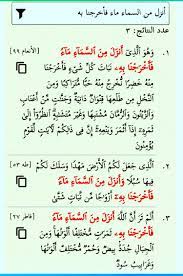 أنزل من السماء ماء فأخرجنا به
عدد النتائج: ٣
١. وَهُوَ ٱلَّذِىٓ أَنزَلَ مِنَ ٱلسَّمَآءِ مَآءً [الأنعام ٩٩]
فَأَخْرَجْنَا بِهِۦ نَبَاتَ كُلِّ شَىْءٍ فَأَخْرَجْنَا
مِنْهُ خَضِرًا نُّخْرِجُ مِنْهُ حَبًّا مُّتَرَاكِبًا وَمِنَ
ٱلنَّخْلِ مِن طَلْعِهَا قِنْوَانٌ دَانِيَةٌ وَجَنَّٰتٍ مِّنْ أَعْنَابٍ
وَٱلزَّيْتُونَ وَٱلرُّمَّانَ مُشْتَبِهًا وَغَيْرَ مُتَشَٰبِهٍ
ٱنظُرُوٓا۟ إِلَىٰ ثَمَرِهِۦٓ إِذَآ أَثْمَرَ وَيَنْعِهِۦٓ إِنَّ فِى
ذَٰلِكُمْ لَءَايَٰتٍ لِّقَوْمٍ يُؤْمِنُونَ
٢. ٱلَّذِى جَعَلَ لَكُمُ ٱلْأَرْضَ مَهْدًا وَسَلَكَ لَكُمْ [طه ٥٣]
فِيهَا سُبُلًا وَأَنزَلَ مِنَ ٱلسَّمَآءِ مَآءً
فَأَخْرَجْنَا بِهِۦٓ أَزْوَٰجًا مِّن نَّبَاتٍ شَتَّىٰ
٣. أَلَمْ تَرَ أَنَّ ٱللَّهَ أَنزَلَ مِنَ ٱلسَّمَآءِ مَآءً [فاطر ٢٧]
فَأَخْرَجْنَا بِهِۦ ثَمَرَٰتٍ مُّخْتَلِفًا أَلْوَٰنُهَا وَمِنَ
ٱلْجِبَالِ جُدَدٌۢ بِيضٌ وَحُمْرٌ مُّخْتَلِفٌ أَلْوَٰنُهَا
وَغَرَابِيبُ سُودٌ